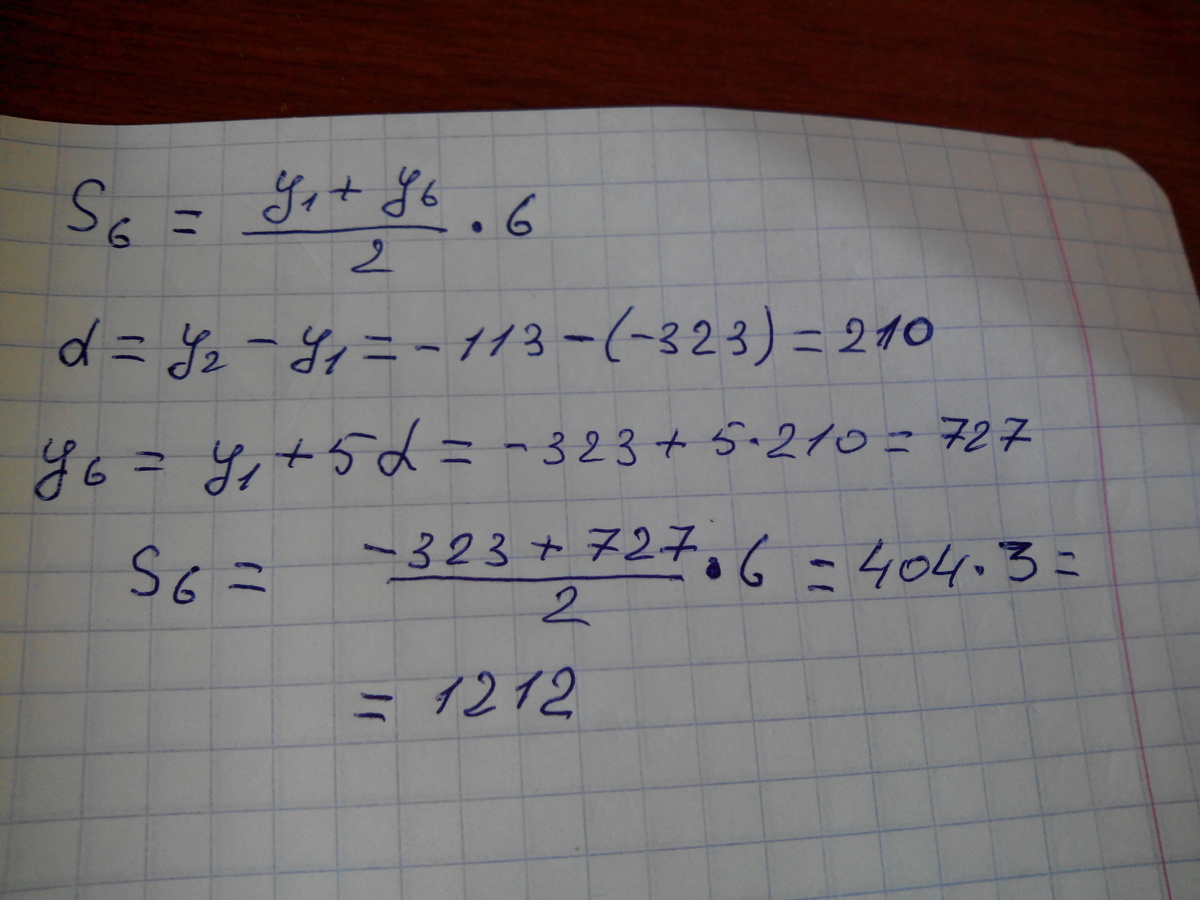 S₆ = (y₁ + y₆)/2 · 6
d = y₂ - y₁ = -113 - (-323) = 210
y₆ = y₁ + 5d = -323 + 5·210 = 727
S₆ = (-323 + 727)/2 · 6 = 404·3 =
= 1212